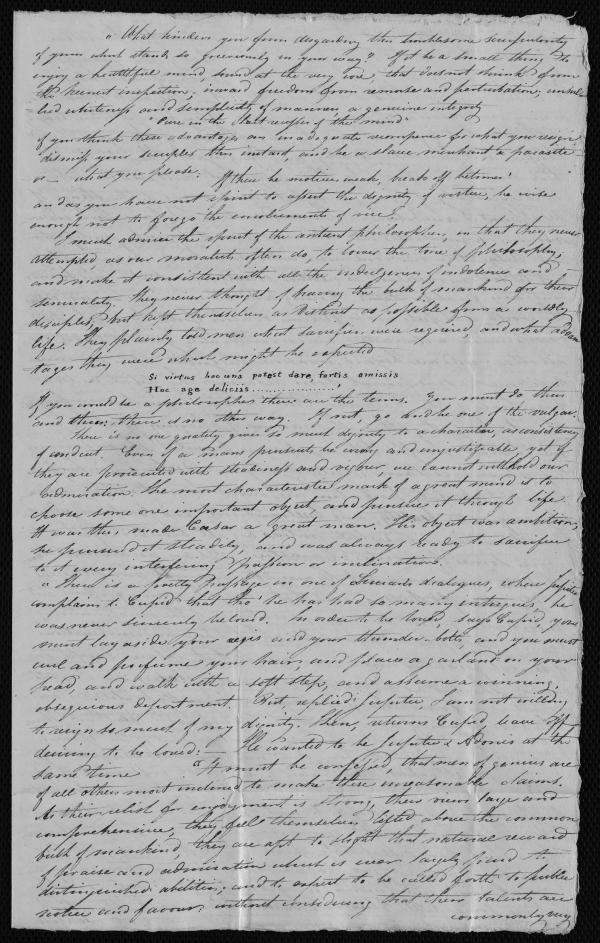 "What hinders you from disgarding this troublesome scrupulosity
of yours which stands so grievously in your way? If it be a small thing to
enjoy a healthful mind, sound at the very core, that does not shrink from
the keenest inspection; inward freedom from remorse and perturbation, unsul
lied whiteness and simplicity of manners, a genuine integrity
"Pure in the last recesses of the mind"
if you think these advantages an inadequate recompence for what you resign
dismiss your scruples this instant, and be a slave merchant, a parasite
or — what you please. If these be motives weak, break off betimes!
and as you have not spirit to assert the dignity of virtue, be wise
enough not to forego the emoluments of vice.
I much admire the spirit of the antient philosophers, in that they never
attempted as our moralists often do, to lower the tone of philosophy,
and make it consistent with all the indulgences of indolence and
sensuality. They never thought of having the bulk of mankind for their
disciples; but kept themselves as distinct as possible from a worldly
life. They plainly told men what sacrifices were required, and what advan
tages they were which might be expected
Si virtus hoc una potest dare, fortis omissis
Hoc age deliciis.................'
If you would be a philosopher these are the terms. You must do thus
and thus: there is no other way. If not, go and be one of the vulgar.
There is no one quality gives so much dignity to a character, as consistency
of conduct. Even if a mans pursuits be wrong and unjustifiable, yet if
they are prosecuted with steadiness and vigour, we cannot withhold our
admiration. The most characteristic mark of a great mind is to
choose some one important object, and pursue it through life.
It was this made Caesar a great man. His object was ambition;
he pursued it steadily, and was always ready to sacrifice
to it every interfering passion or inclination.
"There is a pretty passage in one of Lucian's dialogues, where Jupiter
complains to Cupid that tho' he has had so many intrigues, he
was never sincerely beloved. In order to be loved, says Cupid, you
must lay aside your aegis and your thunder-bolts, and you must
curl and perfume your hair, and place a garland on your
head, and walk with a soft step, and assume a winning,
obsequious deportment. But, replied Jupiter, I am not willing
to resign so much of my dignity. Then, returns Cupid, leave off
desiring to be loved: — He wanted to be Jupiter & Adonis at the
same time "It must be confessed, that men of genius are
of all others most inclined to make these unreasonable claims.
As their relish for enjoyment is strong, their views large and
comprehensive, they feel themselves lifted above the common
bulk of mankind, they are apt to slight that natural reward
of praise and admiration which is ever largely paid to
distinguished abilities; and to expect to be called forth to public
notice and favour: without considering that their talents are
commonly very